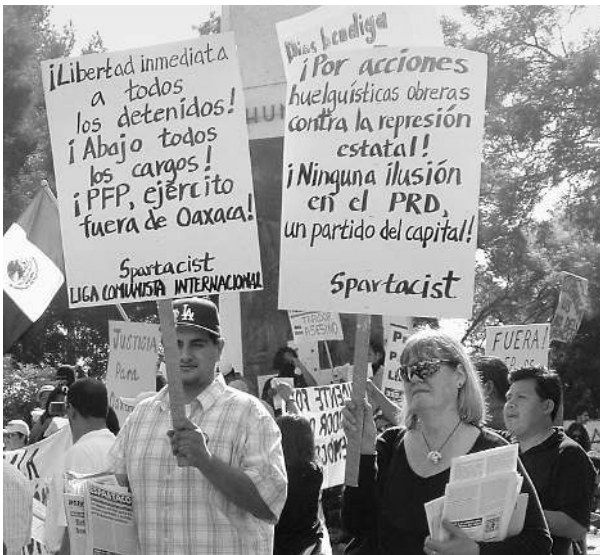 ¡Libertad inmediata
a todos
los detenidos!
¡Abajo todos
los cargos!
¡PFP, ejército
fuera de Oaxaca!
Spartacist
LIGA COMUNISTA INTERNACIONAL
Dios bendiga
¡Por acciones
huelguísticas obreras
contra la represión
estatal!
¡Ninguna ilusión
en el PRD,
un partido del capital!
Spartacist
HU
LA
JUSTICIA
Para
ASESINO
FUERA!